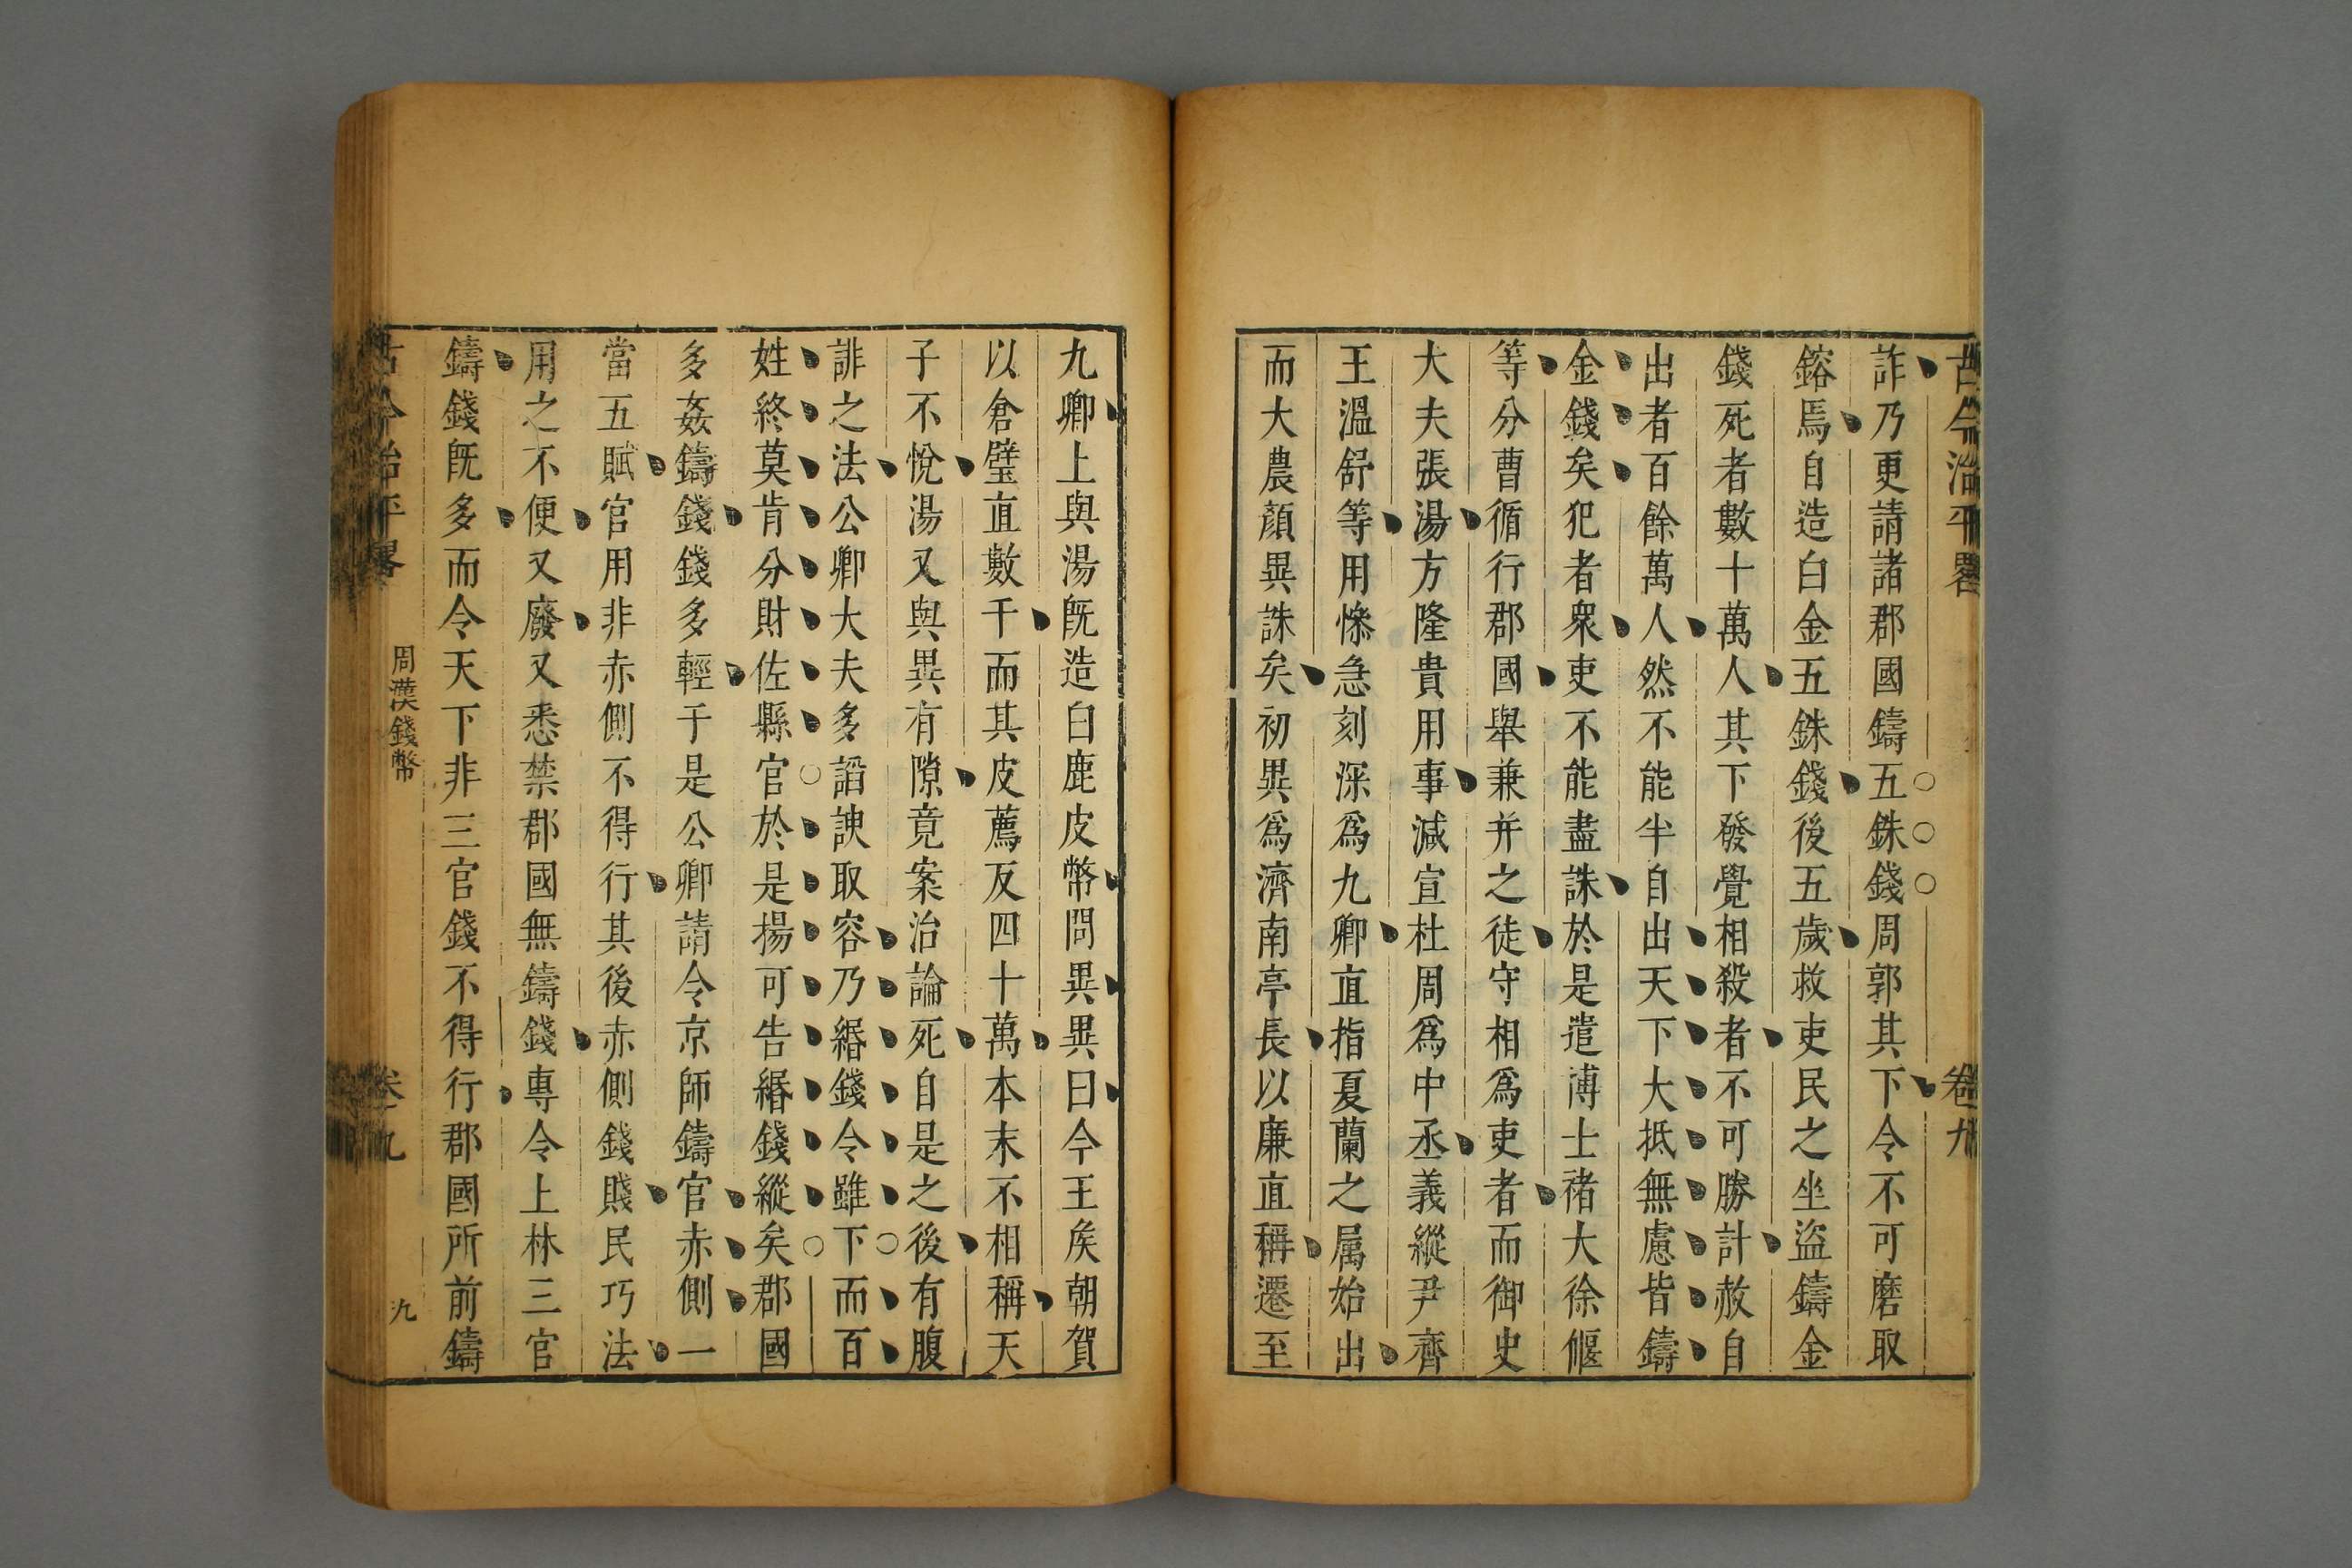 古今治平畧 卷九
詐乃更請諸郡國鑄五銖錢周郭其下令不可磨取
鎔焉自造白金五銖錢後五歲赦吏民之坐盜鑄金
錢死者數十萬人其下發覺相殺者不可勝計赦自
出者百餘萬人然不能半自出天下大抵無慮皆鑄
金錢矣犯者衆吏不能盡誅於是遣博士褚大徐偃
等分曹循行郡國舉兼并之徒守相爲吏者而御史
大夫張湯方隆貴用事減宣杜周爲中丞義縱尹齊
王溫舒等用慘急刻深爲九卿直指夏蘭之属始出
而大農顏異誅矣初異爲濟南亭長以廉直稱遷至
九卿上與湯旣造白鹿皮幣問異異曰今王矦朝賀
以倉璧直數千而其皮薦反四十萬本末不相稱天
子不悅湯又與異有隙竟案治論死自是之後有腹
誹之法公卿大夫多謟諛取容乃緡錢令雖下而百
姓終莫肯分財佐縣官於是揚可告緡錢縱矣郡國
多姦鑄錢錢多輕于是公卿請令京師鑄官赤側一
當五賦官用非赤側不得行其後赤側錢賤民巧法
用之不便又廢又悉禁郡國無鑄錢專令上林三官
鑄錢旣多而令天下非三官錢不得行郡國所前鑄
古今治平畧 周漢錢幣 卷九 九